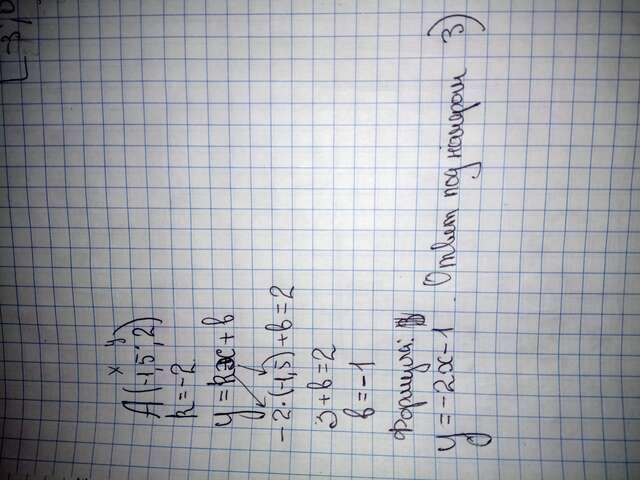 x y
A(-1,5; 2)
k = -2
y = kx + b
-2·(-1,5) + b = 2
3 + b = 2
b = -1
Формулы:
y = -2x - 1. Ответ под номером 3)